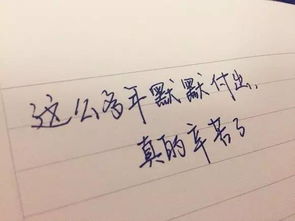 这么多年默默付出,
真的辛苦了